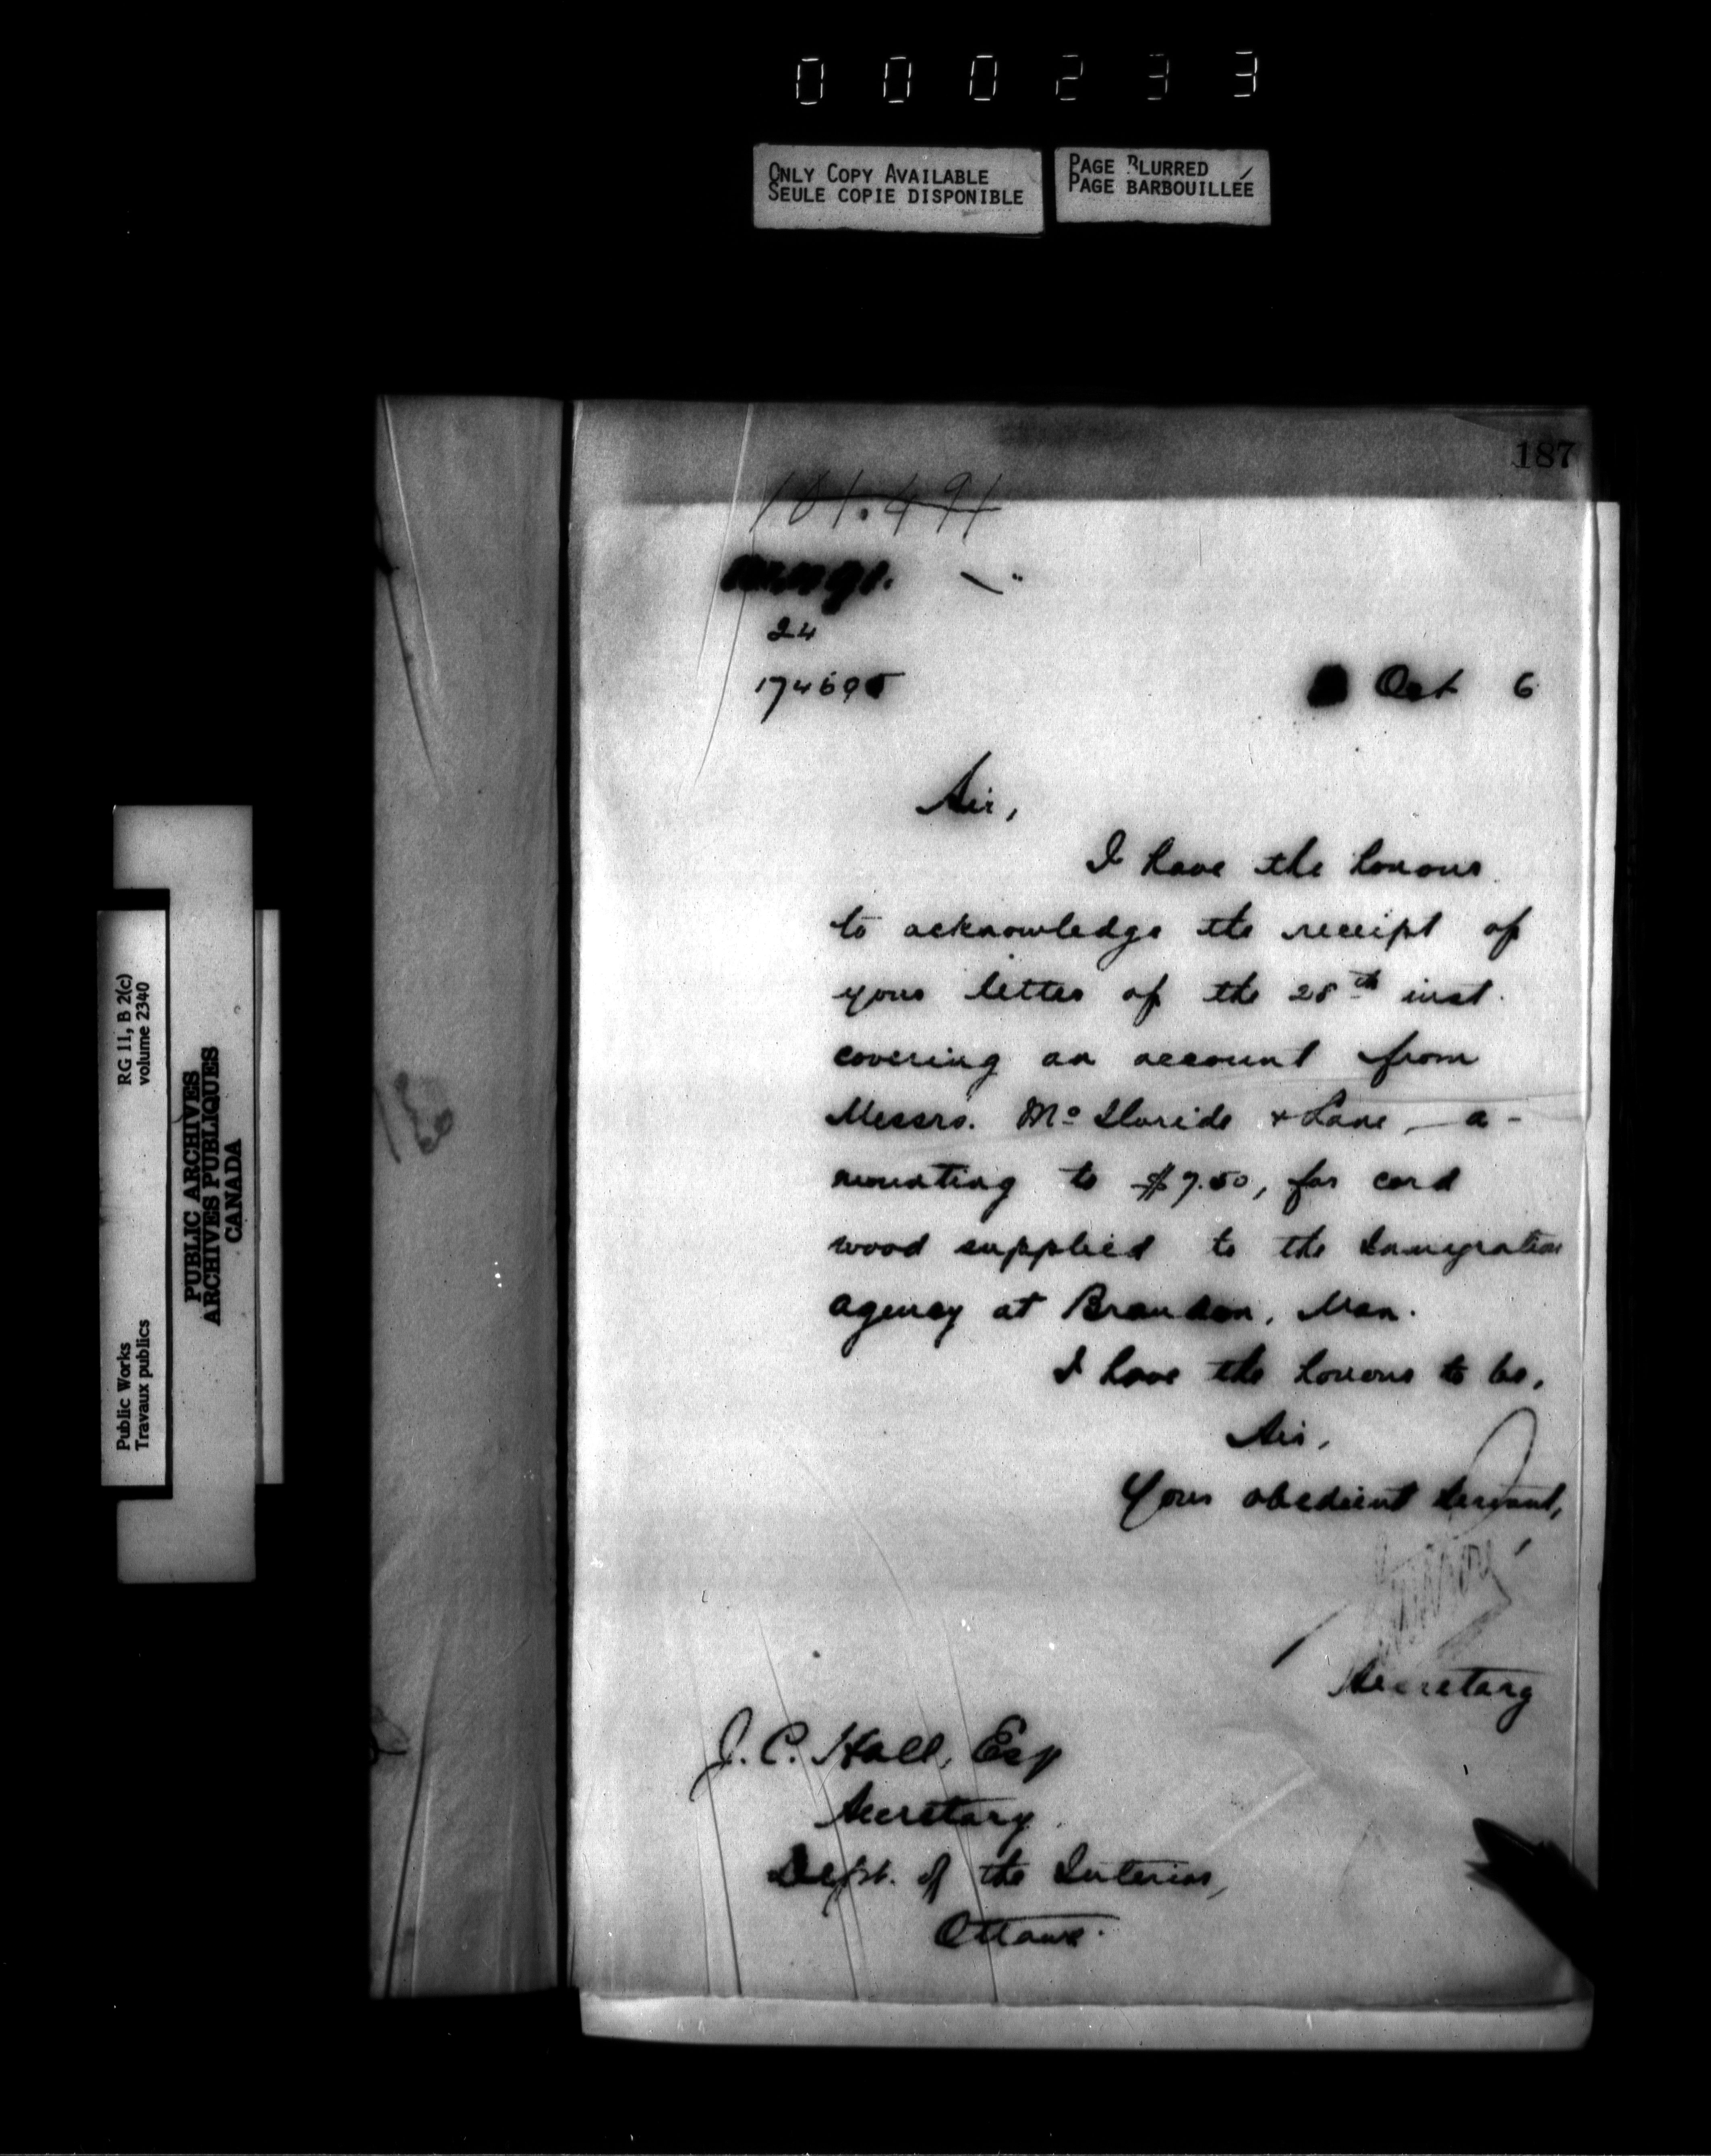 000233
ONLY COPY AVAILABLE
SEULE COPIE DISPONIBLE
PAGE BLURRED
PAGE BARBOUILLÉE
187
101.491
24
Oct 6
Sir,
I have the honour
to acknowledge the receipt of
your letter of the 28th inst.
covering an account from
Messrs. Mc & Lane, a-
mounting to $7.50, for cord
wood supplied to the Immigration
agency at Brandon, Man.
I have the honour to be,
Sir,
Your obedient servant,
Secretary
J. C. Hall, Esq
Secretary
Dept. of the Interior,
Ottawa.
RG 11, B 2(c)
volume 2340
Public Works
Travaux publics
PUBLIC ARCHIVES
ARCHIVES PUBLIQUES
CANADA